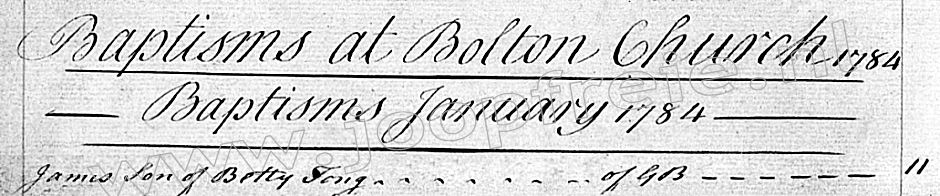 Baptisms at Bolton Church 1784
Baptisms January 1784
James Son of Betty Tong - - - - - - - of GB - - - - - - 11
www.jooptreie.nl